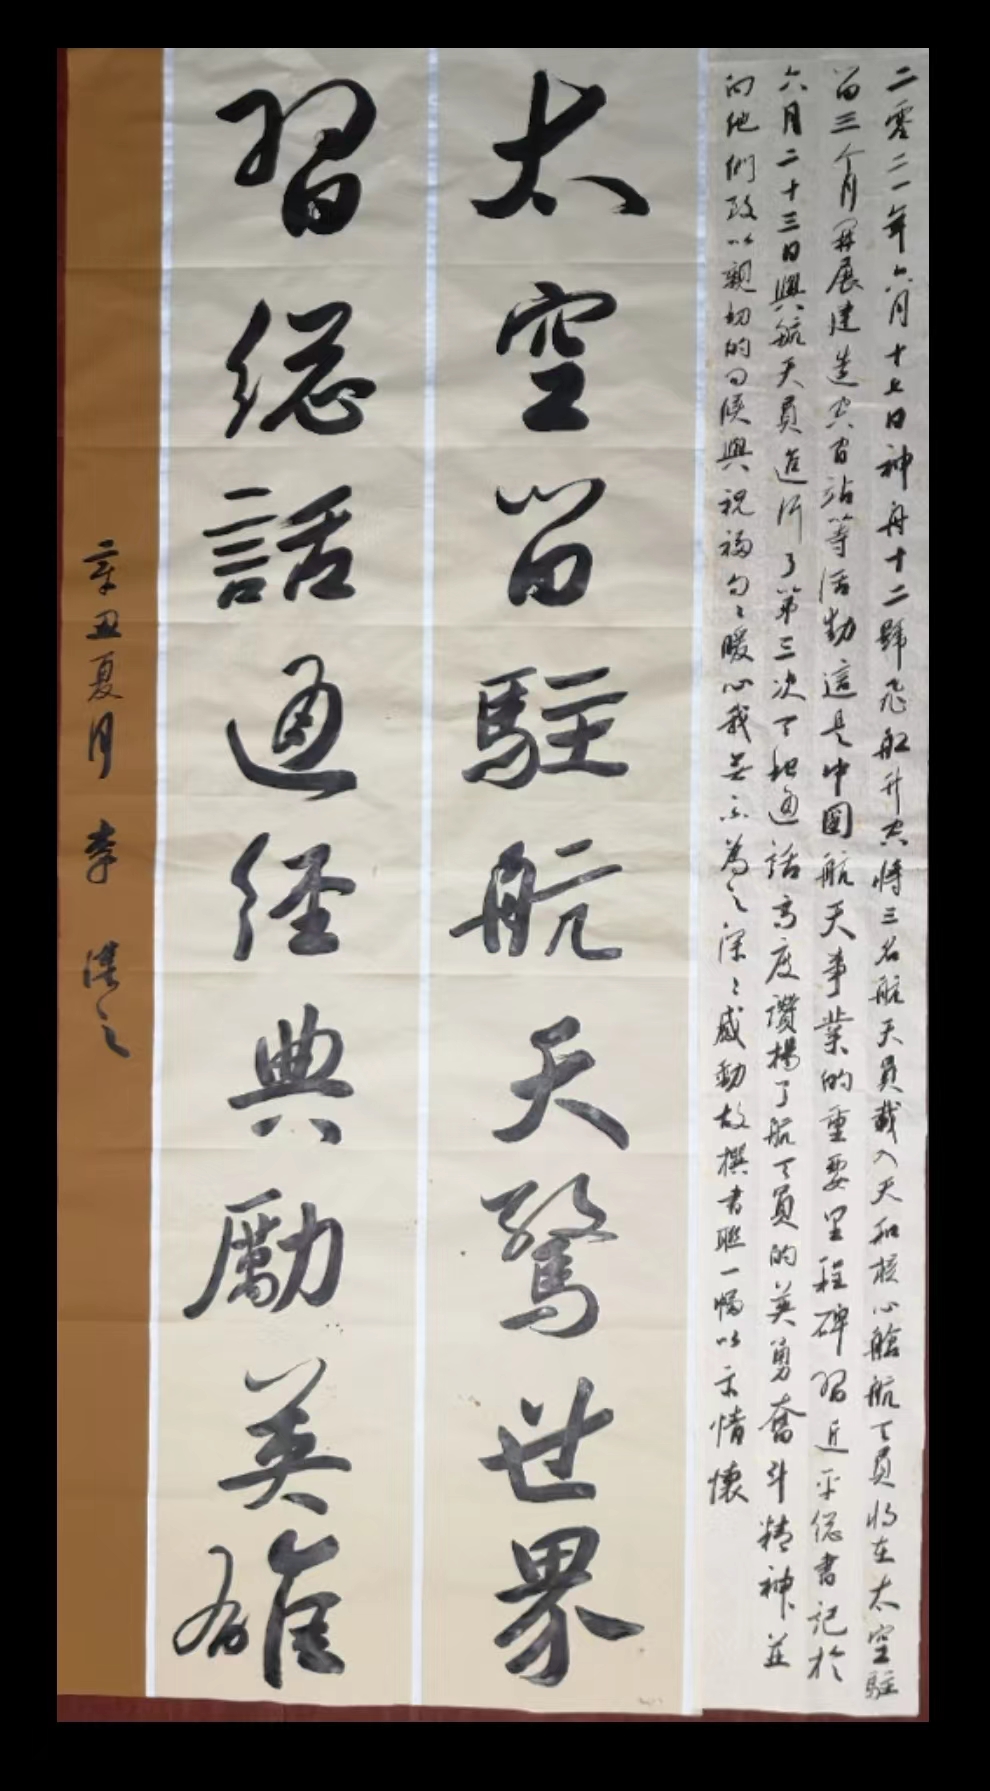 二零二一年六月十七日神舟十二號飛船升空將三名航天員載入天和核心艙航天員將在太空駐
留三个月開展建造空間站等活動這是中國航天事業的重要里程碑習近平總書記於
六月二十三日與航天員進行了第三次天地通話高度讚揚了航天員的英勇奮斗精神並
向他們致以親切的問候與祝福句〻暖心我無不為之深〻感動故撰書聯一幅以示情懷
太空留駐航天驚世界
習總話通經典勵英雄
辛丑夏月 李 漢之